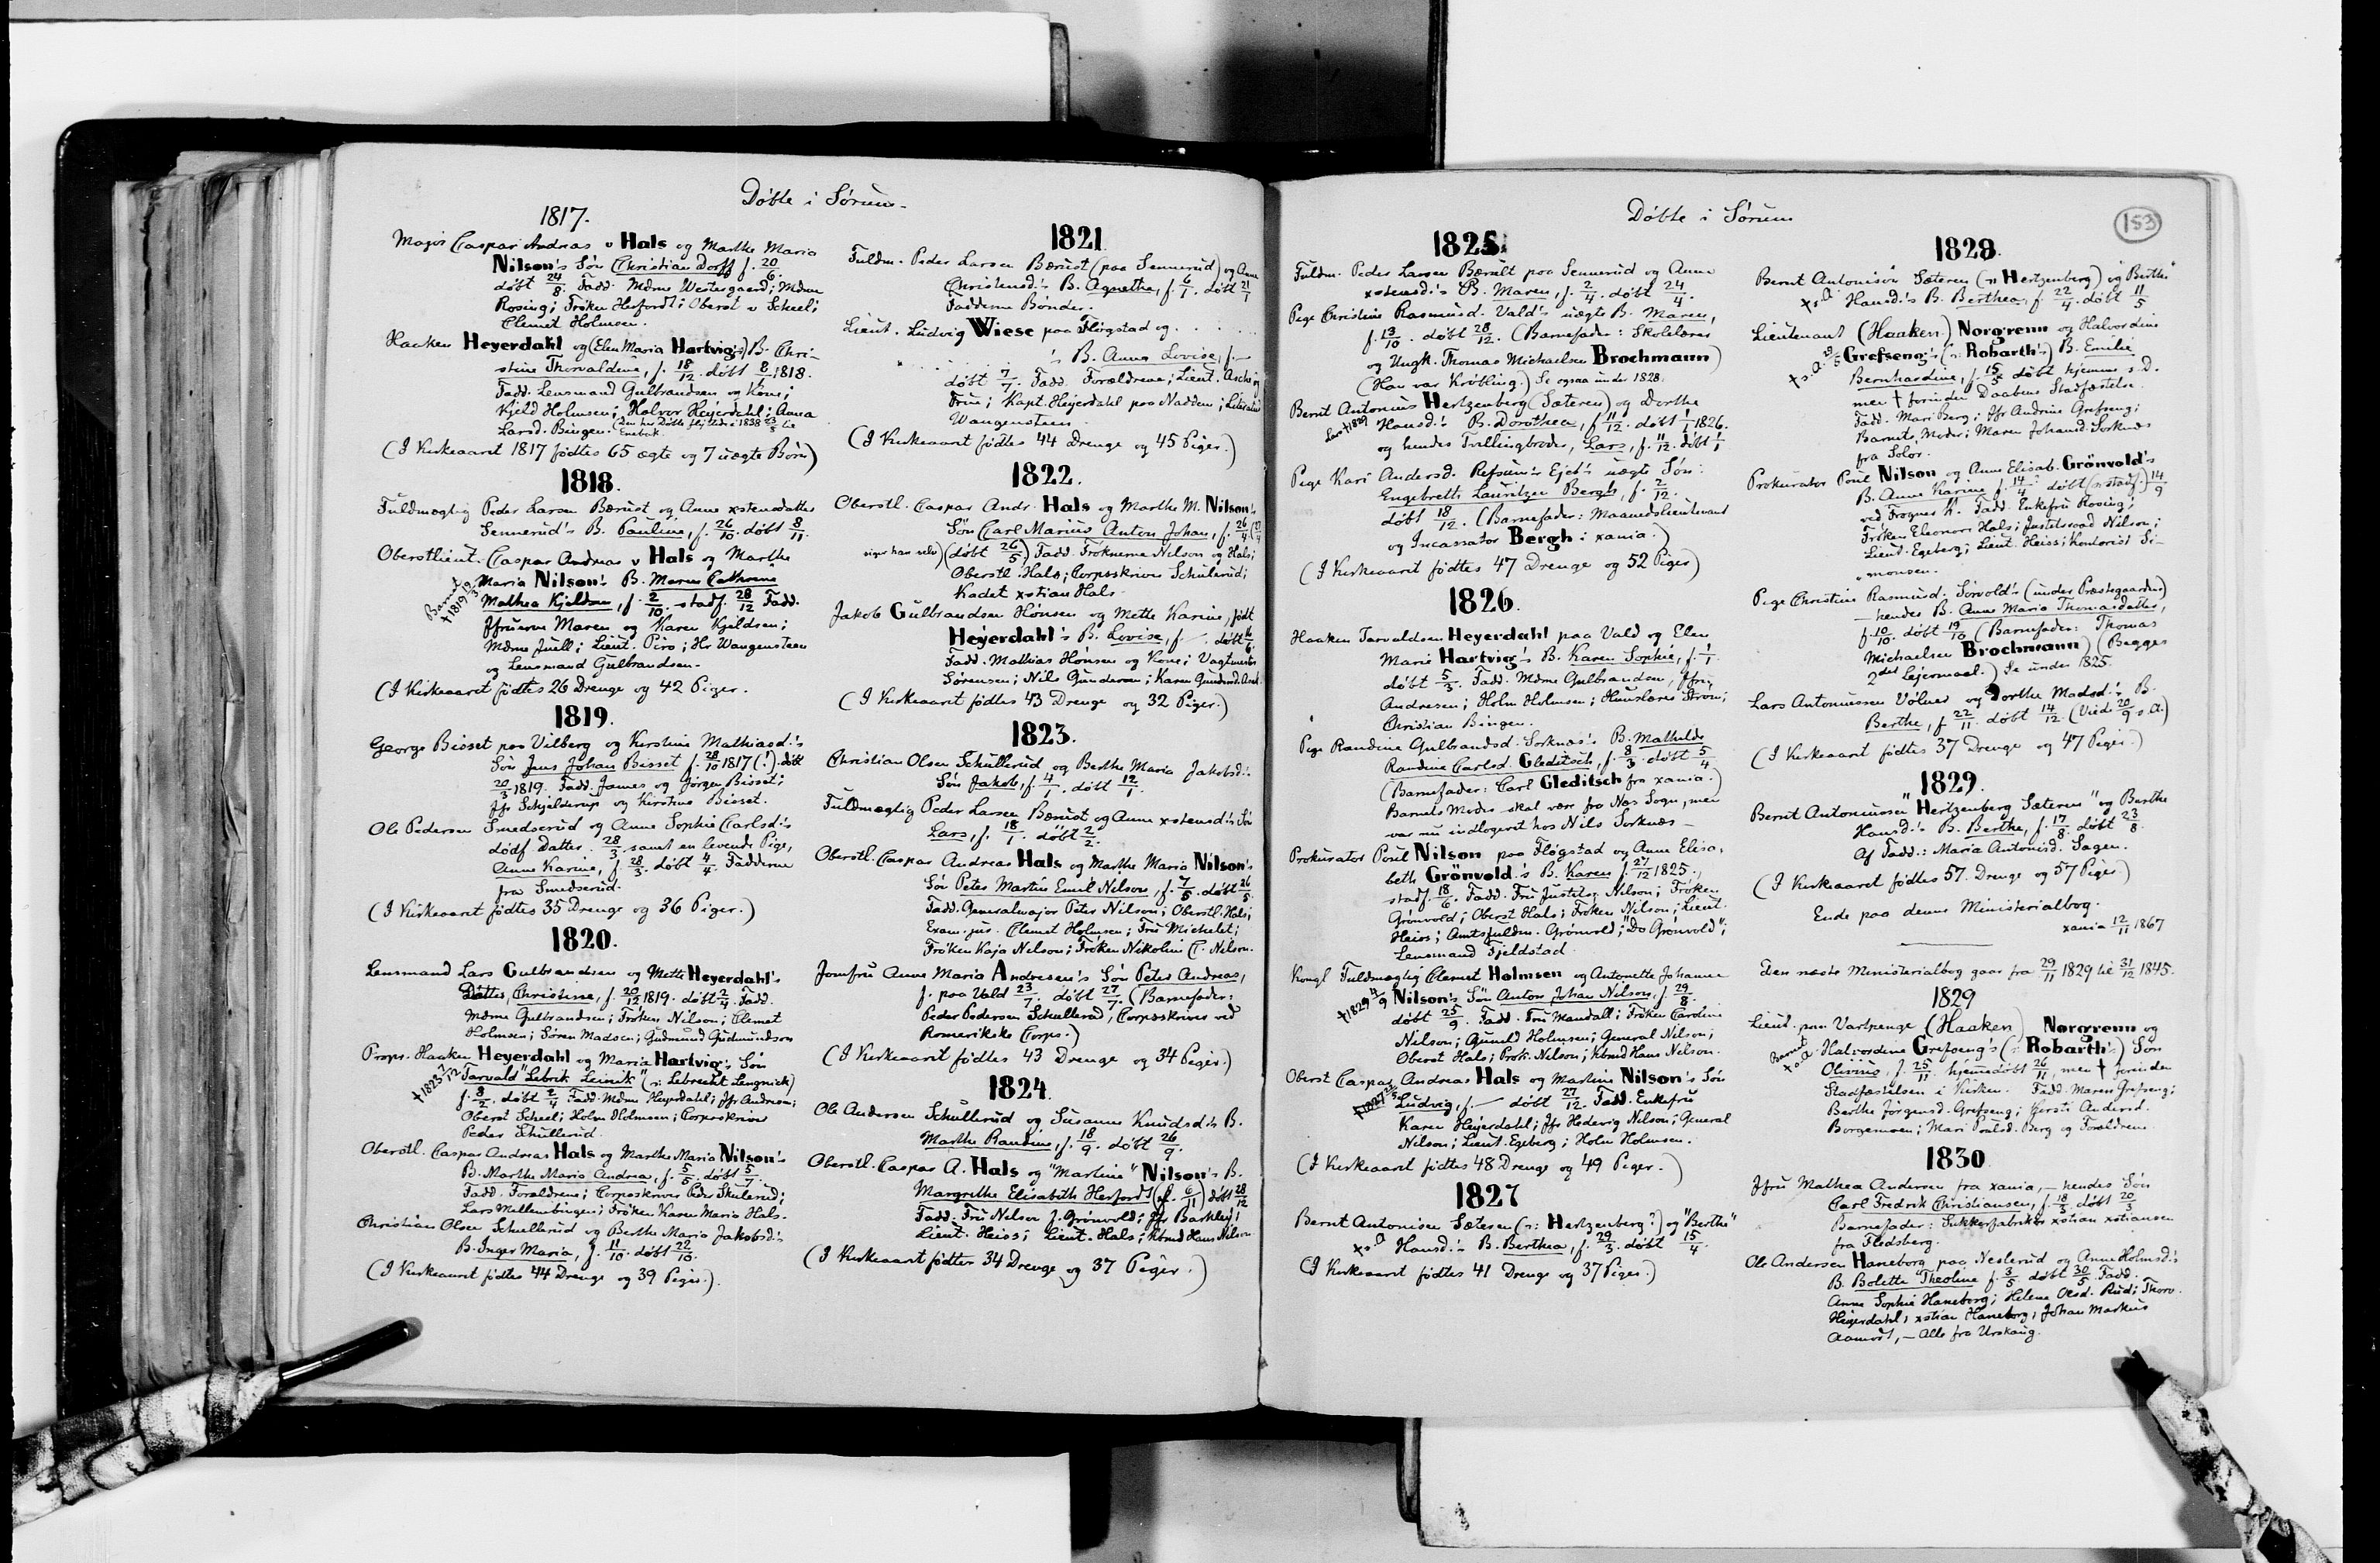 Döbte i Sörum.
1817.
Major Caspar Andreas v Hals og Marthe Maria
Nilson's Sön Christian Dorff f. 20/6.
döbt 24/8. Fadd. Mdme Westergaard; Mdme
Rosing; Fröken Herfordt; Oberst v Scheel;
Clemet Holmsen.
Haaken Heyerdahl og (Elen Maria Hartvig's) B. Chri-
stine Thorvaldine, f. 18/12. döbt 8/1 1818.
Fadd. Lensmand Gulbrandsen og Kone;
Kjeld Holmsen; Halvor Heyerdahl; Anna
Larsd. Bingen. (Den her Döbte flyttede i 1838 23/5 til
Enebak.
(I Kirkeaaret 1817 födtes 65 ægte og 7 uægte Börn)
1818.
Fuldmægtig Peder Larsen Bærust og Anne xstensdatter
Sennerud's B. Pauline, f. 26/10. döbt 8/11.
Oberstlieut. Caspar Andreas v Hals og Marthe
Maria Nilson's B. Maren Cathrine
Barnet † 1819 19/3
Mathea Kjeldsen, f. 2/10. stadf. 28/12 Fadd.
Jfruerne Maren og Karen Kjeldsen;
Mdme Juell; Lieut. Piro; Hr Wangensteen
og Lensmand Gulbrandsen.
(I Kirkeaaret födtes 26 Drenge og 42 Piger.
1819.
George Bisset paa Vilberg og Kirstine Mathiasd.'s
Sön Jens Johan Bisset f. 28/10 1817 (!). döbt
20/3 1819. Fadd. James og Jörgen Bisset;
Jfr Schjelderup og Kirstine Bisset.
Ole Pedersen Smedserud og Anne Sophie Carlsd.'s
dödf. Datter. 28/3 samt en levende Pige,
Anne Karine, f. 28/3. döbt 4/4. Fadderne
fra Smedserud.
(I Kirkeaaret födtes 35 Drenge og 36 Piger.)
1820.
Lensmand Lars Gulbrandsen og Mette Heyerdahl's
Datter, Christine, f. 20/12 1819. döbt 2/4. Fadd.
Mdme Gulbrandsen; Fröken Nilson; Clemet
Holmsen; Sören Madsen; Gudmund Gudmundson
Propr. Haaken Heyerdahl og Maria Hartvig's Sön
† 1823 7/12 Tarvald "Lebrik Leinik" (ɔ: Lebrecht Lengnick)
f. 8/2. döbt 2/4 Fadd. Mdme Heyerdahl; Jfr Andresen;
Oberst Scheel; Holm Holmsen; Corpsskriver
Peder Schullerud.
Oberstl. Caspar Andreas Hals og Marthe Maria Nilson's
B. Marthe Maria Andrea, f. 5/5. döbt 5/7.
Fadd. Forældrene; Corpsskriver Peder Skulerud;
Lars Mellembingen; Fröken Karen Maria Hals.
Christian Olsen Schullerud og Berthe Maria Jakobsd.'s
B. Inger Maria, f. 11/10. döbt 22/10.
(I Kirkeaaret födtes 44 Drenge og 39 Piger.)
1821
Fuldm. Peder Larsen Bærust (paa Sennerud) og Anne
Christensd.'s B. Agnethe, f. 6/1. döbt 21/1
Fadderne Bönder.
Lieut. Ludvig Wiese paa Flögstad og . . . . .
. . . . 's B. Anna Lovise, f. —
döbt 7/7. Fadd. Forældrene; Lieut. Asche og
Frue; Kapt. Heyerdahl paa Nadden;
Wangensteen
(I Kirkeaaret födtes 44 Drenge og 45 Piger.)
1822.
Oberstl. Caspar Andr. Hals og Marthe M. Nilson's
Sön Carl Marius Anton Johan, f. 26/4
siger han selv) (döbt 26/5.) Fadd. Fröknerne Nilson og Hals;
Oberstl. Hals; Corpsskriver Schulerud;
Kadet xstian Hals.
Jakob Gulbrandsen Hönsen og Mette Karine, födt
Heyerdahl's B. Lovise, f. — . döbt
Fadd. Mathias Hönsen og Kone; Vagtmester
Sörensen; Nils Gundersen; Karen Gundersd.
(I Kirkeaaret födtes 43 Drenge og 32 Piger.)
1823.
Christian Olsen Schullerud og Berthe Maria Jakobsd.'s
Sön Jakob, f. 4/1. döbt 12/1.
Fuldmægtig Peder Larsen Bærust og Anne xstensd.'s Sön
Lars, f. 18/1. döbt 2/2.
Oberstl. Caspar Andreas Hals og Marthe Maria Nilson's
Sön Peter Martin Emil Nilson, f. 7/5. döbt 26/5.
Fadd. Generalmajor Peter Nilson; Oberstl. Hals;
Exam. jur. Clemet Holmsen; Fru Michelet;
Fröken Kaja Nilson; Fröken Nikoline C. Nilson.
Jomfru Anne Maria Andresen's Sön Peter Andreas,
f. paa Vald 23/7. döbt 27/7. (Barnefader:
Peder Pedersen Schullerud, Corpsskriver ved
Romerikske Corps.)
(I Kirkeaaret födtes 43 Drenge og 34 Piger.)
1824.
Ole Andersen Schullerud og Susanne Knudsd.'s B.
Marthe Randine, f. 18/9. döbt 26/9.
Oberstl. Caspar A. Hals og "Martine" Nilson's B.
Margrethe Elisabeth Herfordt (f. 6/11) döbt 28/12
Fadd. Fru Nilson f. Grönvold; Jfr Barkley;
Lieut. Heiss; Lieut. Hals; Kbmd Hans Nilson
(I Kirkeaaret födtes 34 Drenge og 37 Piger.)
Döbte i Sörum
153
1825.
Fuldm. Peder Larsen Bærust paa Sennerud og Anne
xstensd.'s B. Maren, f. 2/4. döbt 24/4.
Pige Christine Rasmusd. Vald's uægte B. Maren,
f. 13/10. döbt 28/12. (Barnefader: Skolelærer
og Ungk. Thomas Michaelsen Brochmann)
(Han var Kröbling.) Se ogsaa under 1828.
Bernt Antonius Hertzenberg (Sæteren) og Dorthe
Lars † 1829 Hansd.'s B. Dorothea, f. 11/12. döbt 1/1 1826.
og hendes Tvillingbroder, Lars, f. 11/12. döbt 1/1
Pige Kari Andersd. Refsum's Ejet's uægte Sön:
Engebreth Lauritzen Bergh, f. 2/12.
döbt 18/12. (Barnefader: Maanedslieutenant
og Incassator Bergh i xania.)
(I Kirkeaaret födtes 47 Drenge og 52 Piger)
1826.
Haaken Tarvaldsen Heyerdahl paa Vald og Elen
Marie Hartvig's B. Karen Sophie, f. 1/1.
döbt 5/3. Fadd. Mdme Gulbrandsen, Jfr.
Andresen; Holm Holmsen; Huuslærer Ström;
Christian Bingen.
Pige Randine Gulbrandsd. Sorknæs's B. Mathilde
Randine Carlsd. Gleditsch, f. 8/3. döbt 5/4
(Barnefader: Carl Gleditsch fra xania.)
Barnets Moder skal være fra Næs Sogn, men
var nu indlogeret hos Nils Sorknæs —
Prokurator Poul Nilson paa Flögstad og Anne Elisa-
beth Grönvold's B. Karen f. 27/12 1825.,
stadf. 18/6. Fadd. Fru Justitsr. Nilson; Fröken
Grönvold; Oberst Hals; Fröken Nilson; Lieut.
Heiss; Amtsfuldm. Grönvold; "Do Grönvold";
Lensmand Fjeldstad
Kongl. Fuldmægtig Clemet Holmsen og Antonette Johanne
† 1829 Nilson's Sön Anton Johan Nilson, f. 29/8.
döbt 25/9. Fadd. Fru Mandall; Fröken Caroline
Nilson; Gunild Holmsen; General Nilson;
Oberst Hals; Prok. Nilson; Kbmd Hans Nilson.
Oberst Caspar Andreas Hals og Martine Nilson's Sön
† 1827 Ludvig, f. — döbt 27/12. Fadd. Enkefru
Karen Heyerdahl; Jfr Hedevig Nilson; General
Nilson; Lieut. Egeberg; Holm Holmsen.
(I Kirkeaaret födtes 48 Drenge og 49 Piger.)
1827
Bernt Antonisen Sæteren (ɔ: Hertzenberg?) og "Berthe"
† s. A Hansd.'s B. Berthea, f. 29/3. döbt 15/4.
(I Kirkeaaret födtes 41 Drenge og 37 Piger.)
1828.
Bernt Antonisön Sæteren (ɔ: Hertzenberg) og "Berthe"
† s. A. Hansd.'s B. Berthea, f. 22/4. döbt 11/5
Lieutenant (Haaken) Norgrenn og Halvordine
Grefseng's (ɔ: Robarth's) B. Emilie
† s. A.
Bernhardine, f. 15/5 döbt hjemme s. D.
men † forinden Daabens Stadfæstelse.
Fadd. Mari Berg; Jfr Andrine Grefseng;
Barnets Moder; Maren Johansd. Sorknæs
fra Solör.
Prokurator Poul Nilson og Anne Elisab. Grönvold's
B. Anne Karine f. 14/4. döbt (ɔ: stadf.) 14/9
ved Frogner K. Fadd. Enkefru Rosing;
Fröken Eleonore Hals; Justitsraad Nilson;
Lieut. Egeberg; Lieut. Heiss; Kontorist Si-
monsen.
Pige Christine Rasmusd. Sorvold's (under Præstegaarden)
— hendes B. Anne Maria Thomasdatter,
f. 10/10. döbt 19/10 (Barnefader: Thomas
Michaelsen Brochmann) (Begges
2det Lejermaal.) Se under 1825.
Lars Antoniussen Völner og Dorthe Madsd.'s B.
Berthe, f. 22/11. döbt 14/12. (Viede 20/9 s. A.)
(I Kirkeaaret födtes 37 Drenge og 47 Piger.)
1829.
Bernt Antoniussen "Hertzenberg Sæteren" og Berthe
Hansd.'s B. Berthe, f. 17/8. döbt 23/8.
Af Fadd.: Maria Antonisd. Sagen.
(I Kirkeaaret födtes 57 Drenge og 57 Piger)
Ende paa denne Ministerialbog.
xania 12/11 1867
Den næste Ministerialbog gaar fra 29/11 1829 til 31/12 1845.
1829
Lieut. paa Vartpenge (Haaken) Norgrenn og
Barnet † s. A. Halvordine Grefseng's (ɔ: Robarth's) Sön
Olivius, f. 25/11. hjemmedöbt 26/11, men † forinden
Stadfæstelsen i Kirken. Fadd. Maren Grefseng;
Berthe Jörgensd. Grefseng; Kersti Andersd.
Borgemoen; Mari Poulsd. Berg og Forældrene
1830
Jfru Mathea Andersen fra xania, — hendes Sön
Carl Fredrik Christiansen, f. 18/3 döbt 20/3
Barnefader: Sukkerfabrikör xstian xstiansen
fra Flodsberg.
Ole Andersen Haneborg paa Neslerud og Anne Holmsd.'s
B. Bolette Theoline f. 3/5 döbt 30/5. Fadd.
Anne Sophie Haneborg; Helene Olsd. Rud; Thorv.
Heyerdahl; xstian Haneborg; Johan Markus
Aamodt, — Alle fra Urskoug.